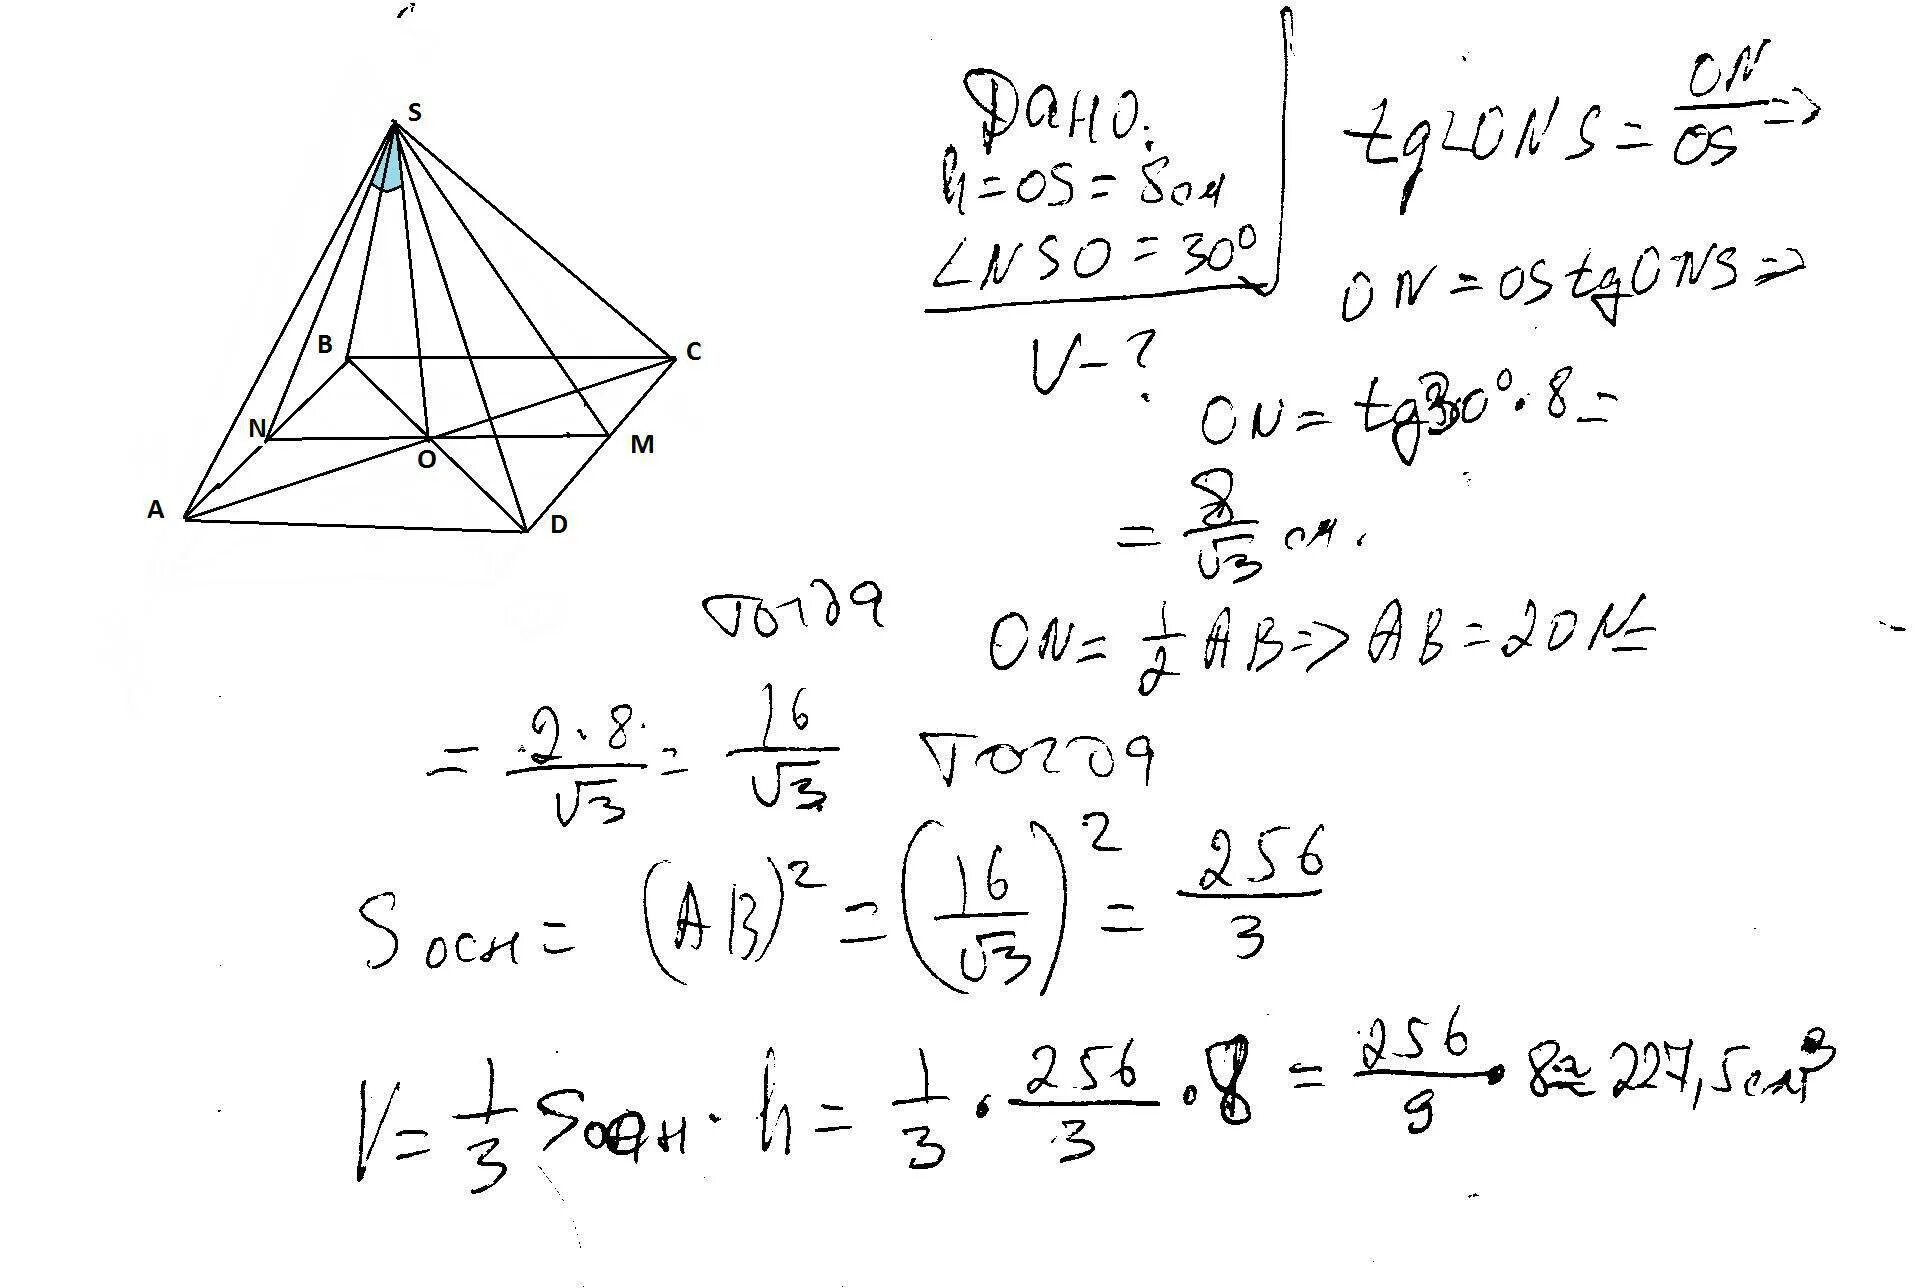 S
B
C
N
M
O
A
D
Дано:
h=OS=8см
∠NSO=30⁰
V-?
tg∠ONS=ON/OS=>
ON=OS tgONS=>
ON=tg30⁰·8=
=8/√3 см.
тогда
ON=1/2 AB=>AB=2ON=
=2·8/√3=16/√3 тогда
Sосн=(AB)²=(16/√3)²=256/3
V=1/3 Sосн·h=1/3·256/3·8=256/9·8≈227,5см³